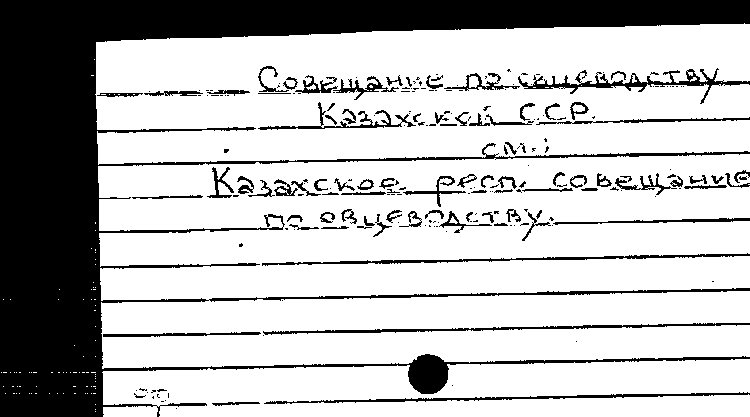 Совещание по овцеводству
Казахской ССР.
см.:
Казахское респ. совещание
по овцеводству.